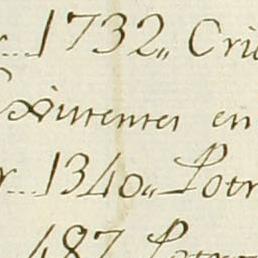 1732,, Cri
Existentes en
1340,, Potr
487 Potr